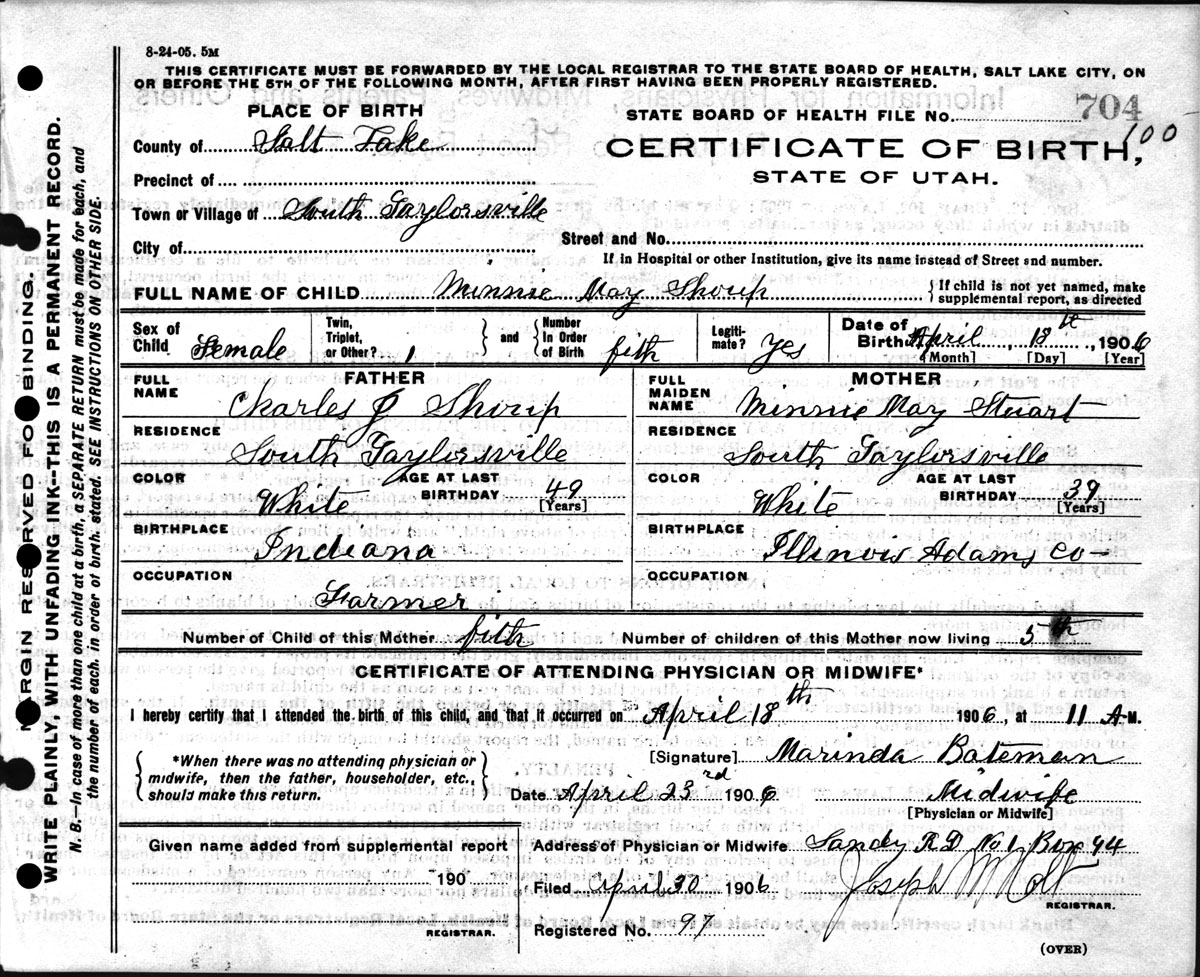 8-24-05. 5M
THIS CERTIFICATE MUST BE FORWARDED BY THE LOCAL REGISTRAR TO THE STATE BOARD OF HEALTH, SALT LAKE CITY, ON
OR BEFORE THE 5TH OF THE FOLLOWING MONTH, AFTER FIRST HAVING BEEN PROPERLY REGISTERED.
PLACE OF BIRTH
STATE BOARD OF HEALTH FILE No. 704
100
County of Salt Lake
CERTIFICATE OF BIRTH,
STATE OF UTAH.
Precinct of
Town or Village of South Taylorsville
City of
Street and No.
If in Hospital or other Institution, give its name instead of Street and number.
FULL NAME OF CHILD Minnie May Shoup
{ If child is not yet named, make supplemental report, as directed
Sex of Child Female
Twin, Triplet, or Other? 1 } and { Number In Order of Birth fith
Legiti-mate? yes
Date of Birth April 18th, 1906
[Month] [Day] [Year]
FATHER
FULL NAME Charles J Shoup
RESIDENCE South Taylorsville
COLOR White AGE AT LAST BIRTHDAY 49 [Years]
BIRTHPLACE Indiana
OCCUPATION Farmer
MOTHER
FULL MAIDEN NAME Minnie May Stuart
RESIDENCE South Taylorsville
COLOR White AGE AT LAST BIRTHDAY 39 [Years]
BIRTHPLACE Illinois Adams Co-
OCCUPATION
Number of Child of this Mother fith Number of children of this Mother now living 5th
CERTIFICATE OF ATTENDING PHYSICIAN OR MIDWIFE*
I hereby certify that I attended the birth of this child, and that it occurred on April 18th 1906, at 11 A M.
{ *When there was no attending physician or midwife, then the father, householder, etc., should make this return. }
[Signature] Marinda Bateman
Date April 23rd 1906 Midwife
[Physician or Midwife]
Given name added from supplemental report
190
REGISTRAR.
Address of Physician or Midwife Sandy R.D. No.1 Box 94
Filed April 30 1906 Joseph M Holt
REGISTRAR.
Registered No. 97
(OVER)
MARGIN RESERVED FOR BINDING.
WRITE PLAINLY, WITH UNFADING INK--THIS IS A PERMANENT RECORD.
N. B.—In case of more than one child at a birth, a SEPARATE RETURN must be made for each, and
the number of each, in order of birth, stated. SEE INSTRUCTIONS ON OTHER SIDE.